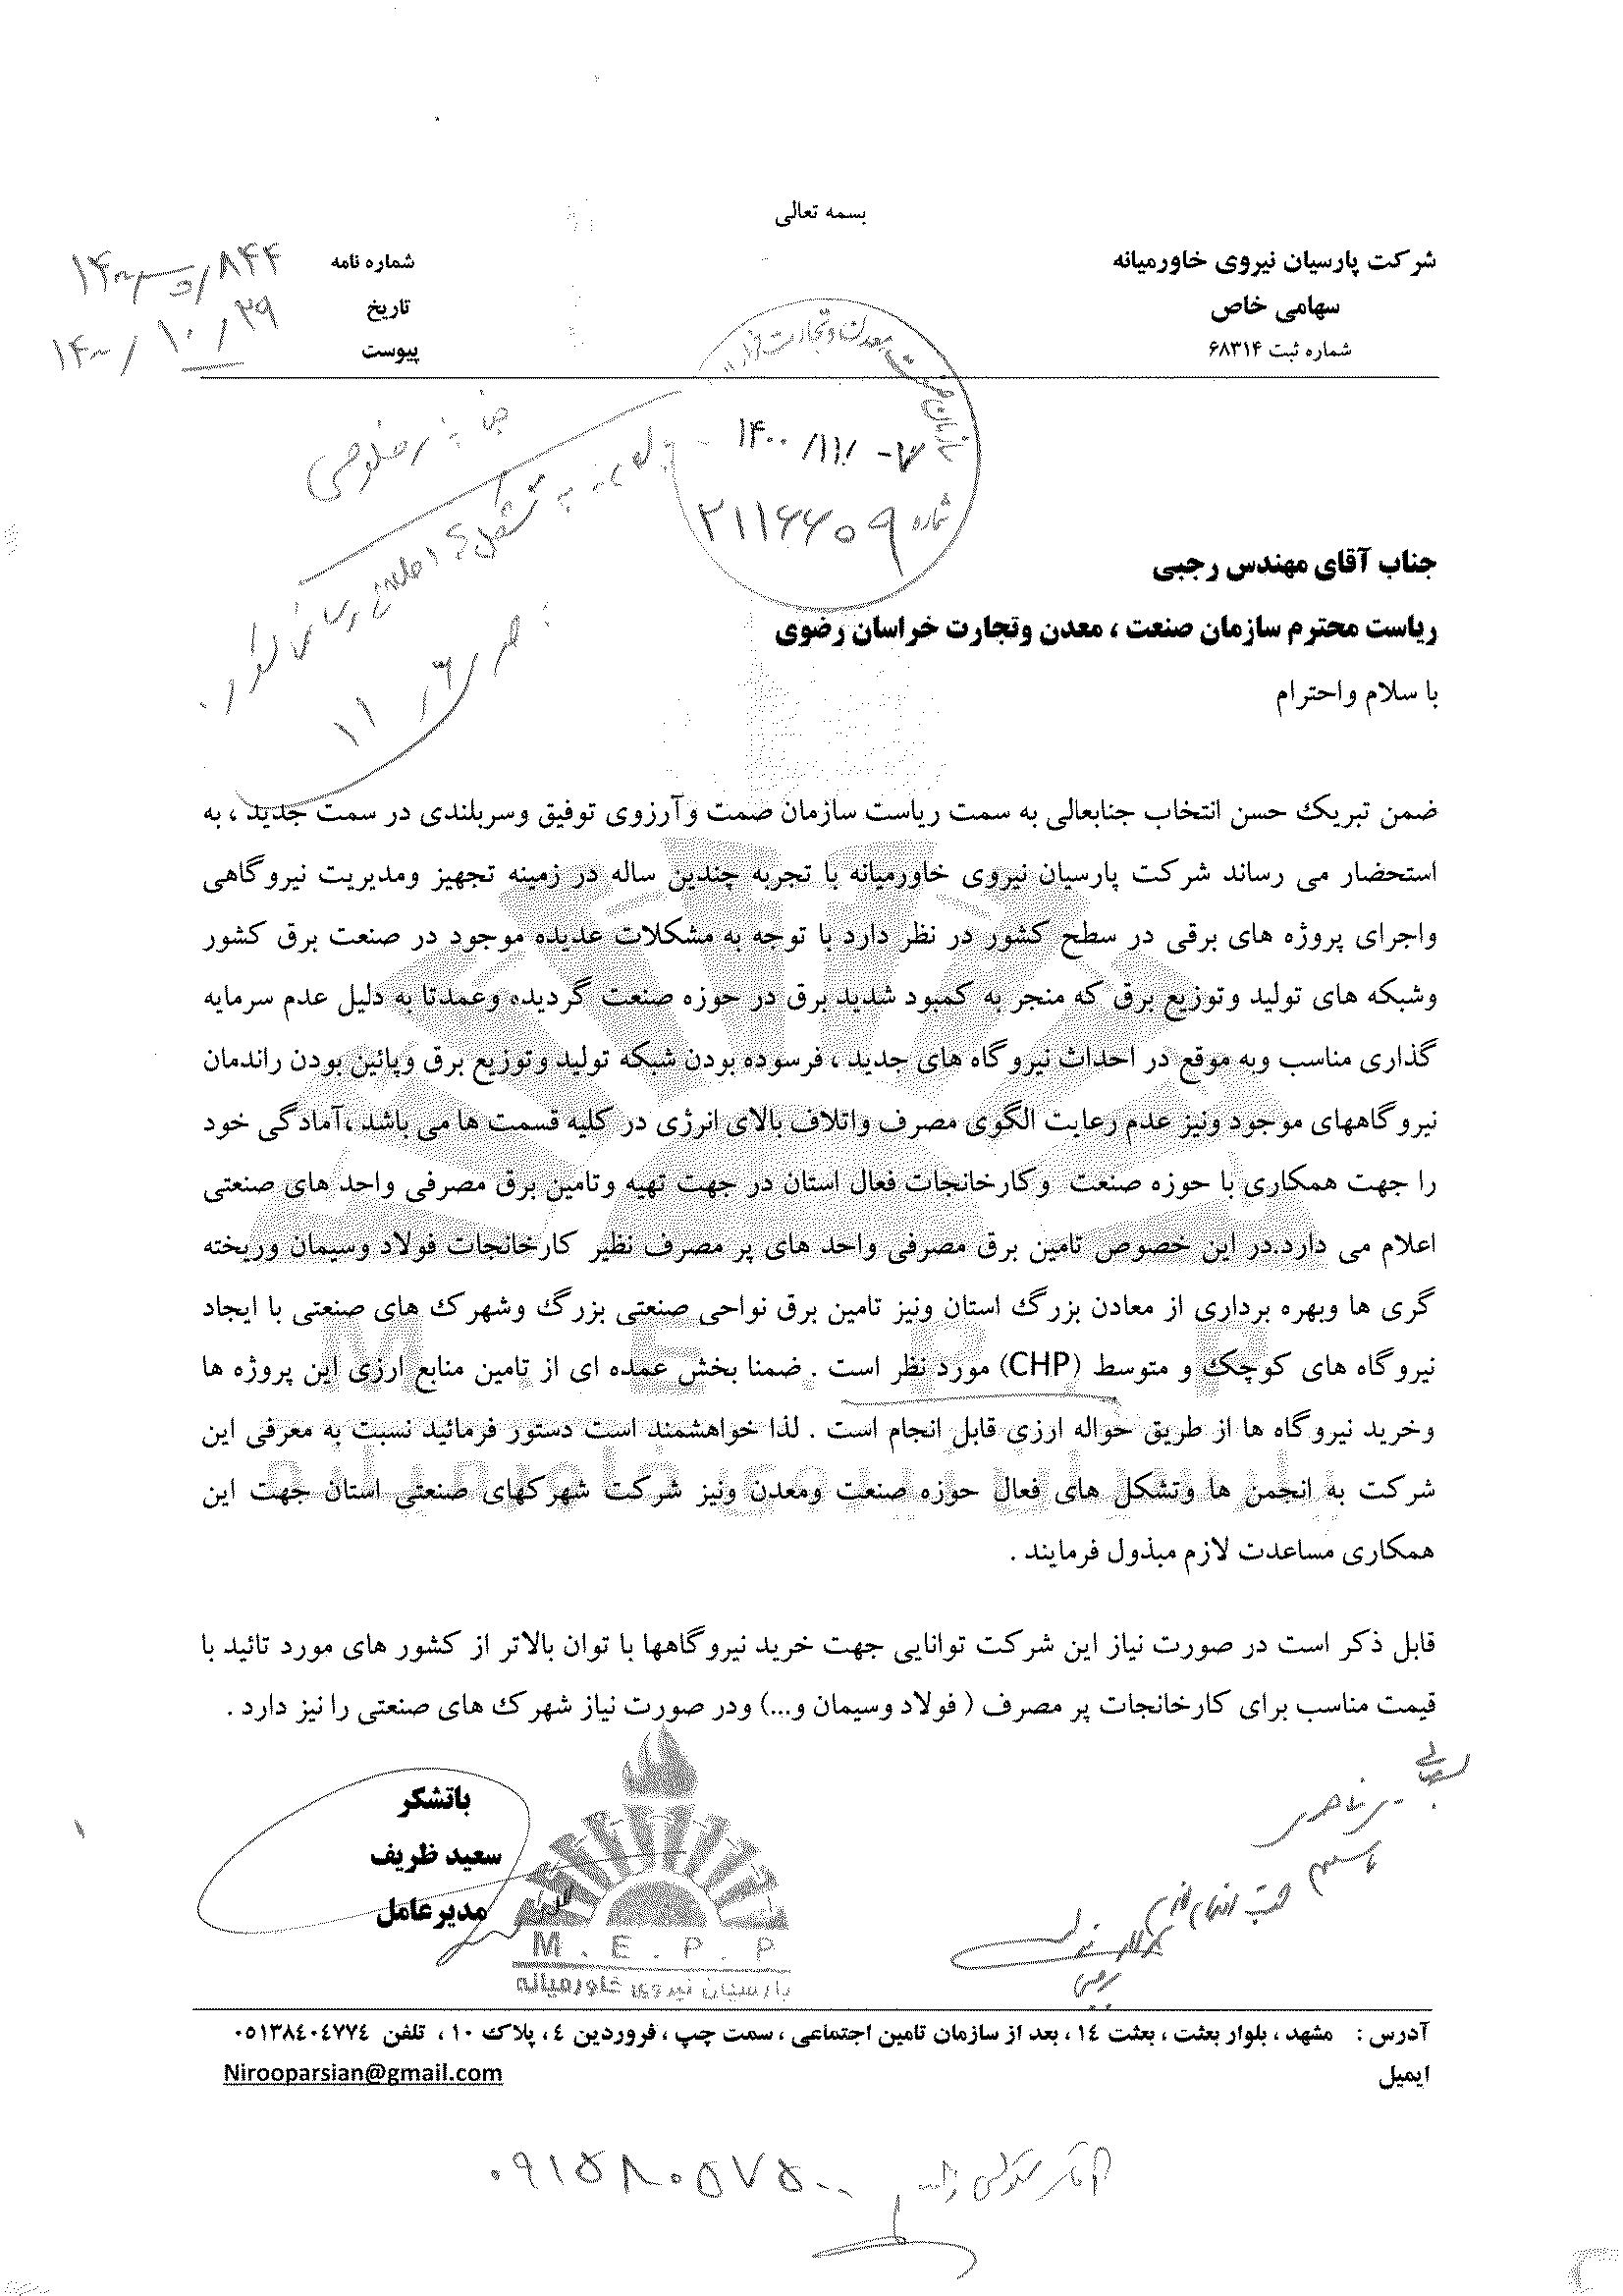 بسمه تعالی
شرکت پارسیان نیروی خاورمیانه
سهامی خاص
شماره ثبت ۶۸۳۱۴
شماره نامه ۸۴۴/
تاریخ ۱۴۰۰/۱۰/۲۹
پیوست
۱۴۰۰/۱۱/۰۷
شماره ۲۱۱۶۶۰۵۹
جناب آقای مهندس رجبی
ریاست محترم سازمان صنعت ، معدن وتجارت خراسان رضوی
با سلام واحترام
ضمن تبریک حسن انتخاب جنابعالی به سمت ریاست سازمان صمت وآرزوی توفیق وسربلندی در سمت جدید ، به
استحضار می رساند شرکت پارسیان نیروی خاورمیانه با تجربه چندین ساله در زمینه تجهیز ومدیریت نیروگاهی
واجرای پروژه های برقی در سطح کشور در نظر دارد با توجه به مشکلات عدیده موجود در صنعت برق کشور
وشبکه های تولید وتوزیع برق که منجر به کمبود شدید برق در حوزه صنعت گردیده وعمدتا به دلیل عدم سرمایه
گذاری مناسب وبه موقع در احداث نیروگاه های جدید ، فرسوده بودن شبکه تولید وتوزیع برق وپائین بودن راندمان
نیروگاههای موجود ونیز عدم رعایت الگوی مصرف واتلاف بالای انرژی در کلیه قسمت ها می باشد ،آمادگی خود
را جهت همکاری با حوزه صنعت وکارخانجات فعال استان در جهت تهیه وتامین برق مصرفی واحد های صنعتی
اعلام می دارد.در این خصوص تامین برق مصرفی واحد های پر مصرف نظیر کارخانجات فولاد وسیمان وریخته
گری ها وبهره برداری از معادن بزرگ استان ونیز تامین برق نواحی صنعتی بزرگ وشهرک های صنعتی با ایجاد
نیروگاه های کوچک و متوسط (CHP) مورد نظر است . ضمنا بخش عمده ای از تامین منابع ارزی این پروژه ها
وخرید نیروگاه ها از طریق حواله ارزی قابل انجام است . لذا خواهشمند است دستور فرمائید نسبت به معرفی این
شرکت به انجمن ها وتشکل های فعال حوزه صنعت ومعدن ونیز شرکت شهرکهای صنعتی استان جهت این
همکاری مساعدت لازم مبذول فرمایند .
قابل ذکر است در صورت نیاز این شرکت توانایی جهت خرید نیروگاهها با توان بالاتر از کشور های مورد تائید با
قیمت مناسب برای کارخانجات پر مصرف ( فولاد وسیمان و...) ودر صورت نیاز شهرک های صنعتی را نیز دارد .
باتشکر
سعید ظریف
مدیرعامل
M . E . P . P
پارسیان نیروی خاورمیانه
آدرس : مشهد ، بلوار بعثت ، بعثت ١٤ ، بعد از سازمان تامین اجتماعی ، سمت چپ ، فروردین ٤ ، پلاک ١٠ ، تلفن ٠٥١٣٨٤٠٤٧٧٤
ایمیل Nirooparsian@gmail.com
۰۹۱۵۸۰۵۷۵۰۰